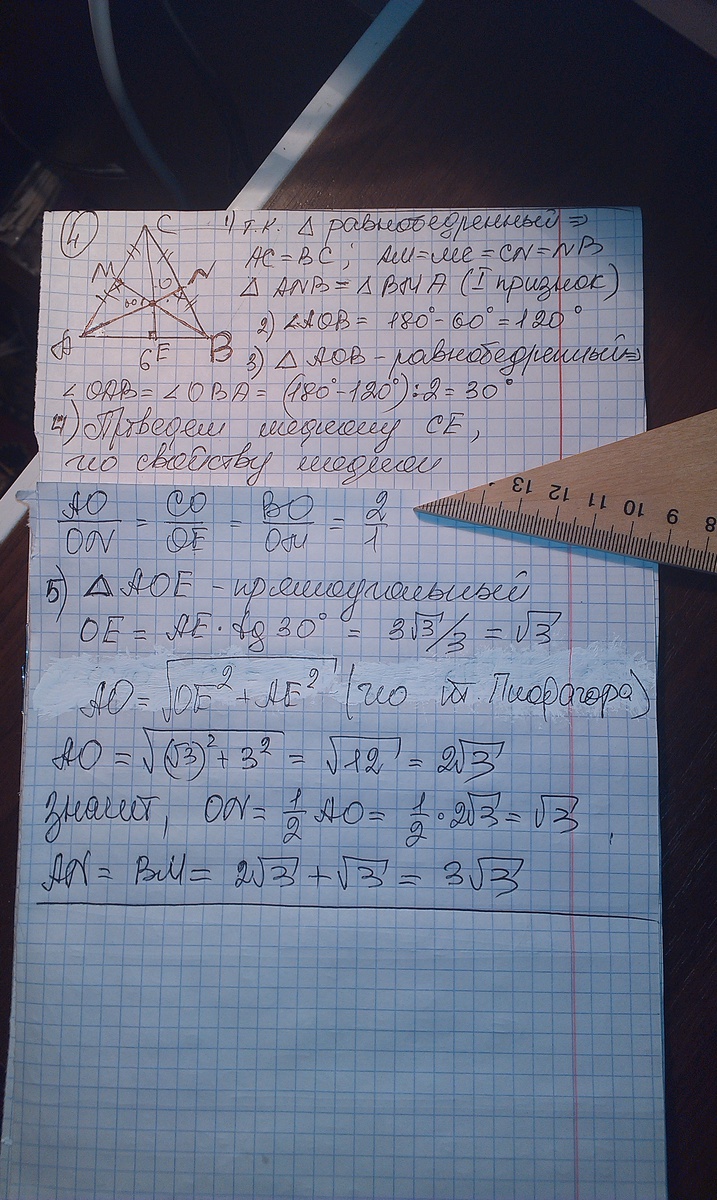 4
C
M
N
O
60°
A
6
E
B
1) т.к. Δ равнобедренный ⇒
AC = BC; AM = MC = CN = NB
Δ ANB = Δ BMA (I признак)
2) ∠AOB = 180° - 60° = 120°
3) Δ AOB - равнобедренный ⇒
∠OAB = ∠OBA = (180° - 120°) : 2 = 30°
4) Проведем медиану CE,
по свойству медиан
AO/ON = CO/OE = BO/OM = 2/1
5) Δ AOE - прямоугольный
OE = AE · tg 30° = 3√3/3 = √3
AO = √(OE² + AE²) (по т. Пифагора)
AO = √((√3)² + 3²) = √12 = 2√3
Значит, ON = 1/2 AO = 1/2 · 2√3 = √3,
AN = BM = 2√3 + √3 = 3√3
13 12 11 10 9 8